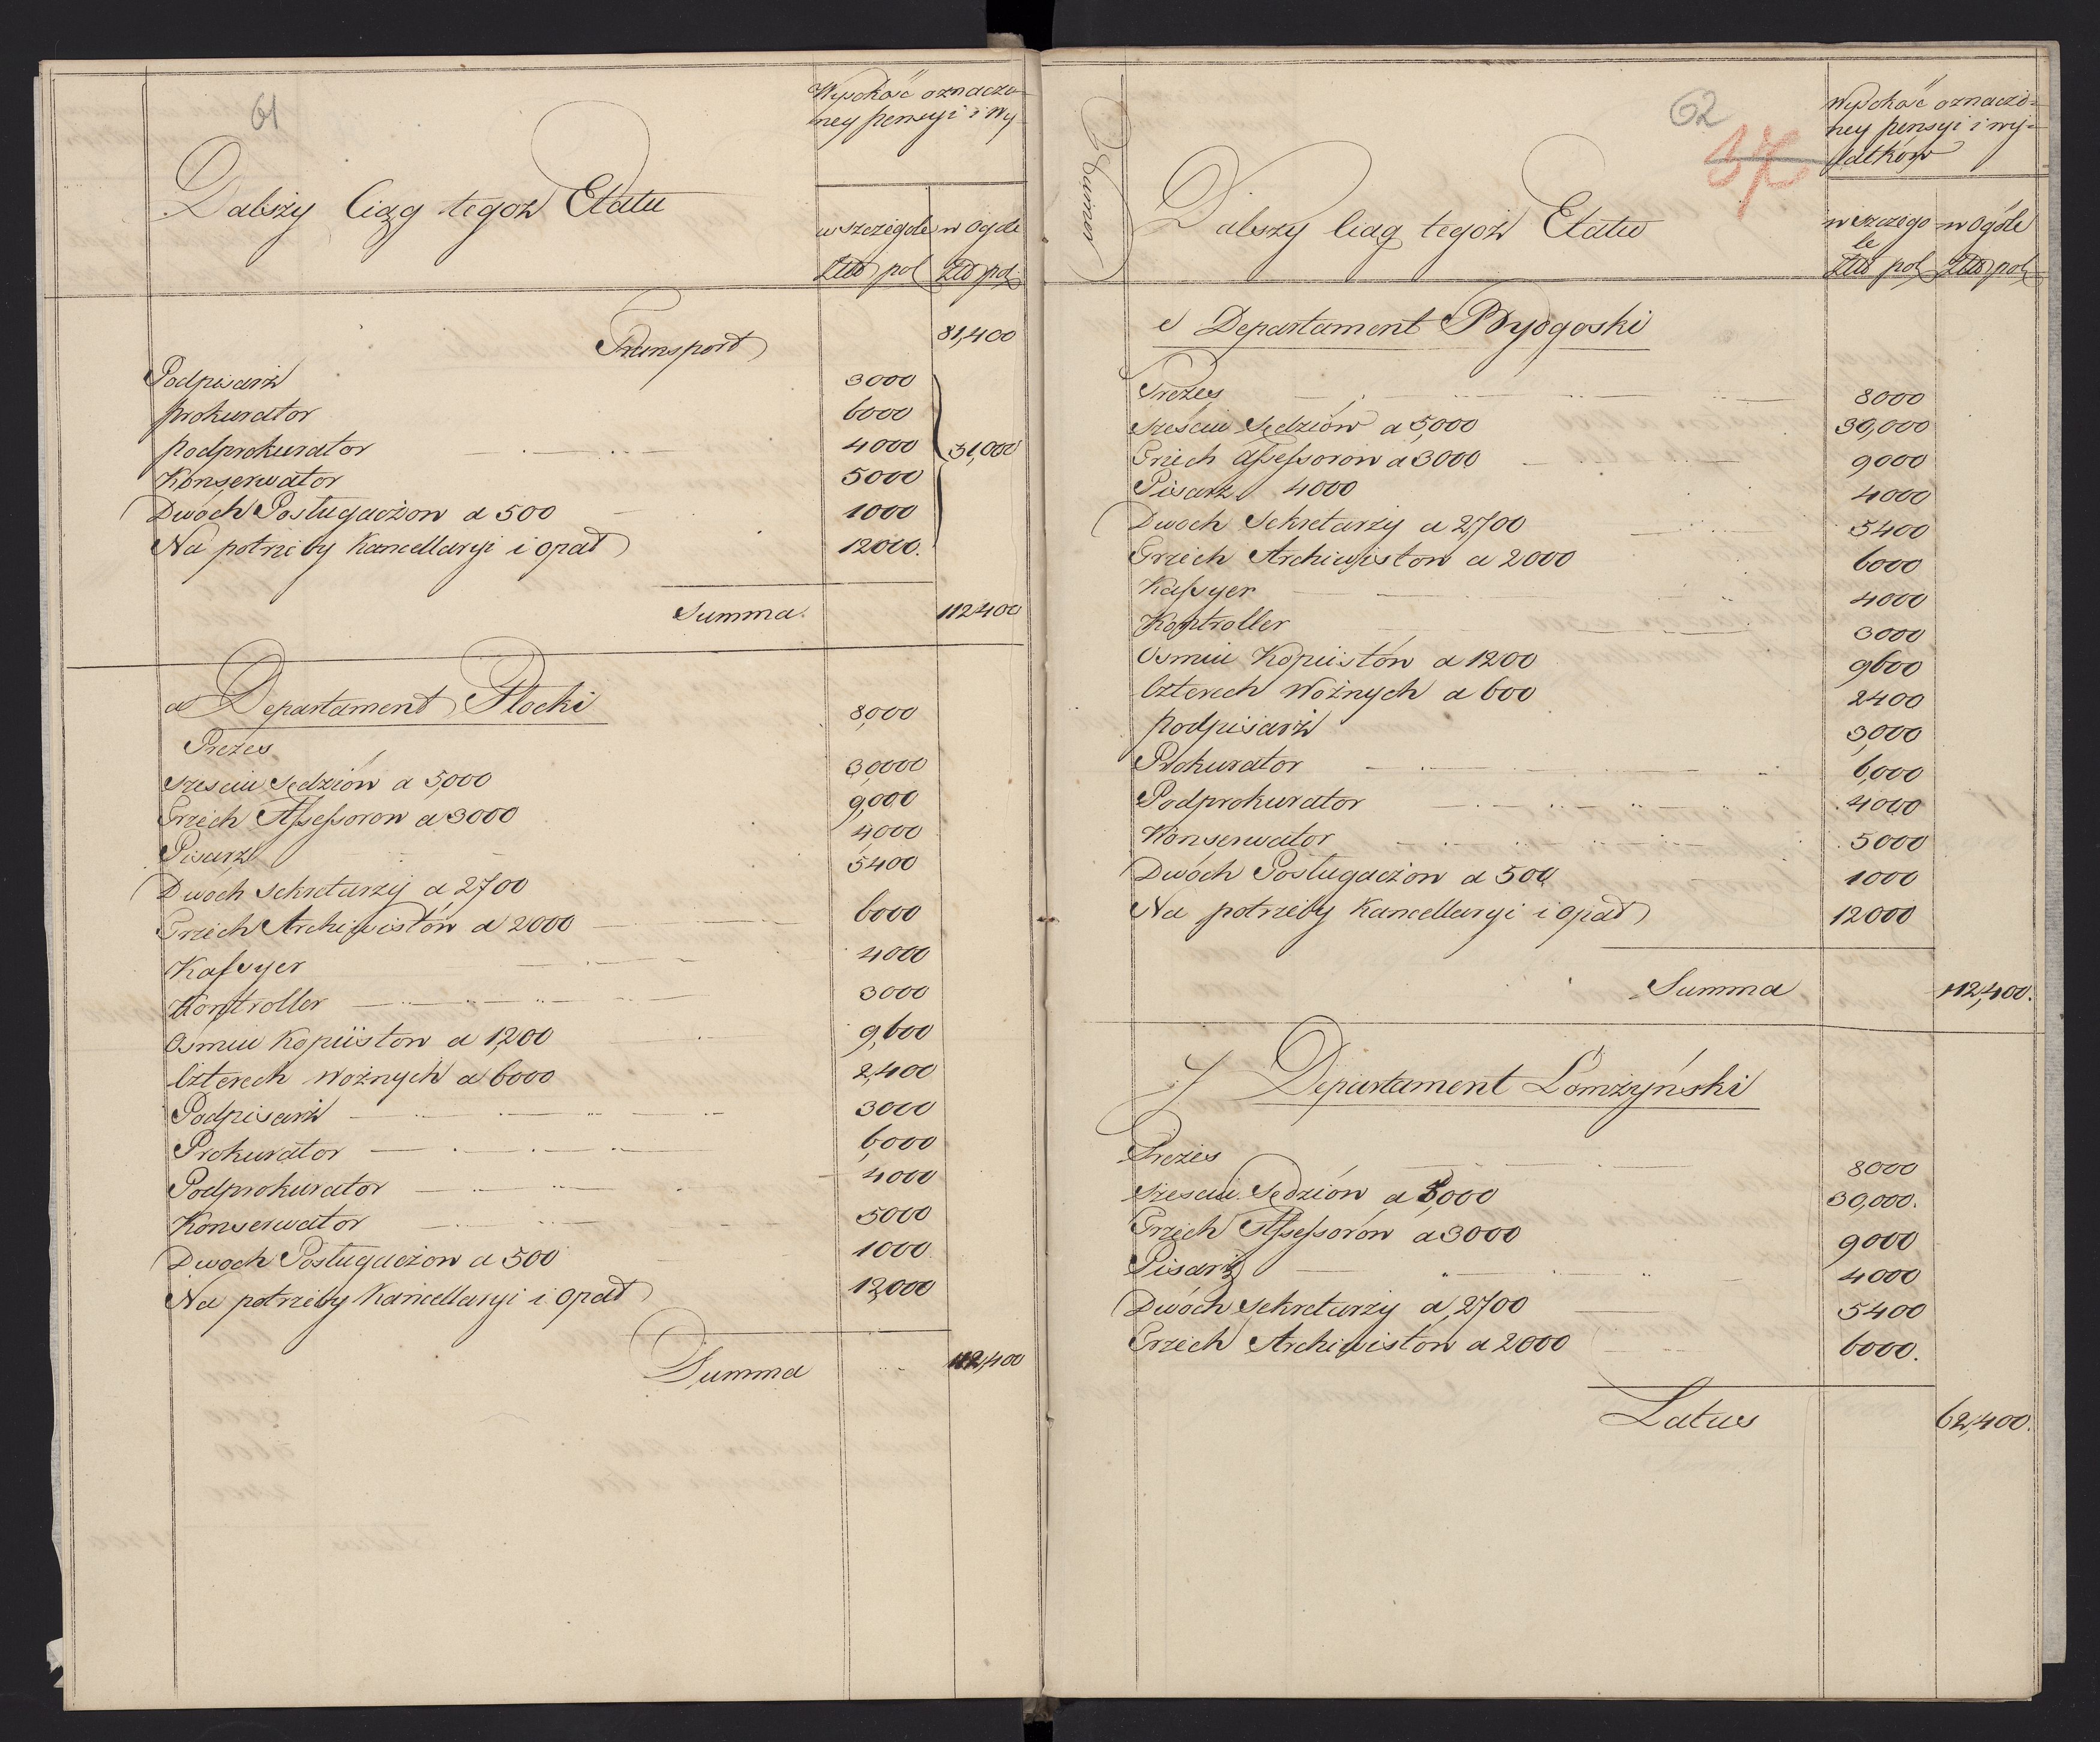 61
Wysokość oznaczo-
ney pensyi i wy-
Dalszy Ciąg tegoż Etatu
w szczegole w Ogole
Złło pol Złło pol
Transport 81,400
Podpisarż 3000
prokurator 6000
podprokurator 4000 31,000
Konserwator 5000
Dwóch Posługaczow a 500 1000
Na potrzeby Kancellaryi i opał 12000.
Summa. 112400
d Departament Płocki
Prezes 8,000
Sześciu Sędziów a 5,000 30,000
Trzech Assessorow a 3000 9,000
Pisarz 4000
Dwóch Sekretarzy a 2,700 5400
Trzech Archiwistów a 2000 6000
Kassyer 4000
Kontroller 3000
Osmiu Kopiistow a 1,200 9,600
Czterech Woźnych a 6000 2,400
Podpisarż 3000
Prokurator 6,000
Podprokurator 4000
Konserwator 5000
Dwoch Posługaczow a 500 1000
Na potrzeby Kancellaryi i opał 12,000
Summa 112,400
62
37
Wysokość oznaczo-
ney pensyi i wy-
datkow
Dalszy Ciąg tegoż Etatu
w szczego- w Ogóle
le
Złło pol Złło pol
e Departament Bydgoski
Prezes 8000
Sześciu Sędziow a 5,000 30,000
Trzech Assessorow a 3000 9000
Pisarz 4000 4000
Dwoch Sekretarzy a 2,700 5400
Trzech Archiwistow a 2000 6000
Kassyer 4000
Kontroller 3000
Osmiu Kopiistów a 1200 9600
Czterech Woźnych a 600 2400
podpisarż 3,000
Prokurator 6,000
Podprokurator 4000
Konserwator 5000
Dwóch Posługaczow a 500 1000
Na potrzeby Kancellaryi i opał 12000
Summa 112,400.
f Departament Łomżyński
Prezes 8000
Sześciu Sędziów a 5,000 30,000.
Trzech Assessorów a 3000 9000
Pisarz 4000
Dwóch Sekretarzy a 2,700 5400
Trzech Archiwistów a 2000 6000.
Latus 62,400.